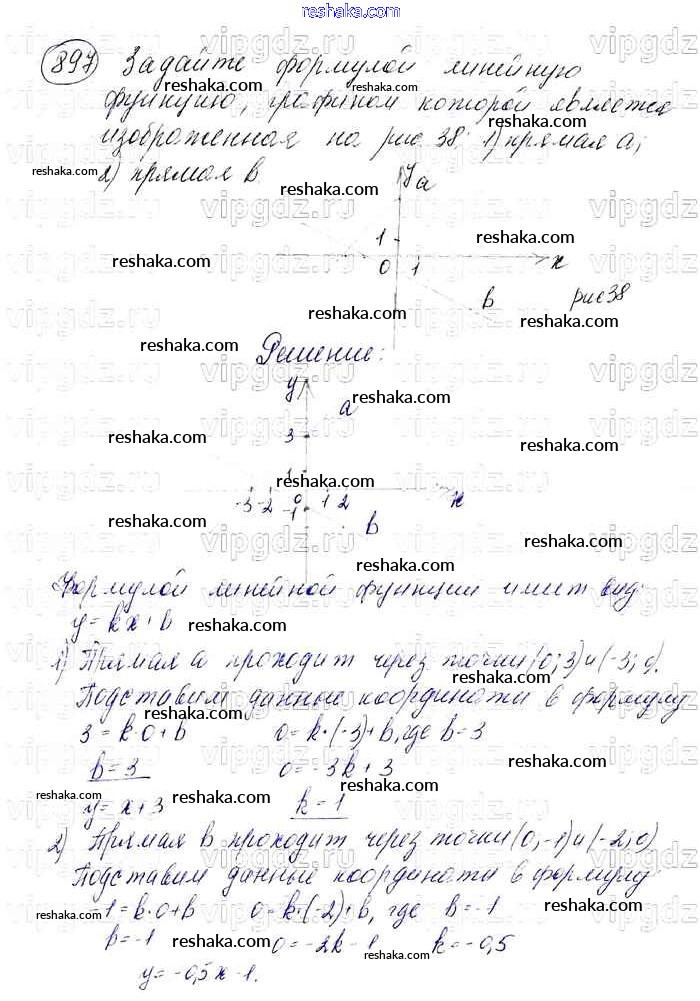 reshaka.com
897 Задайте формулой линейную
функцию, графиком которой является
изображенная на рис 38 1) прямая a;
2) прямая b
y a
1
0 1 x
b рис 38
Решение:
y
a
3
1
-3 -2 0 1 2 x
-1
b
Формулой линейной функции имет вид:
y = kx + b
1) Прямая a проходит через точки (0; 3) и (-3; 0).
Подставим данные координаты в формулу
3 = k·0 + b 0 = k·(-3) + b, где b = 3
b = 3 0 = -3k + 3
y = x + 3 k - 1
2) Прямая b проходит через точки (0, -1) и (-2; 0)
Подставим данные координаты в формулу:
-1 = b·0 + b 0 = k·(-2) + b, где b = -1
b = -1 0 = -2k - 1 k = -0,5
y = -0,5x - 1.